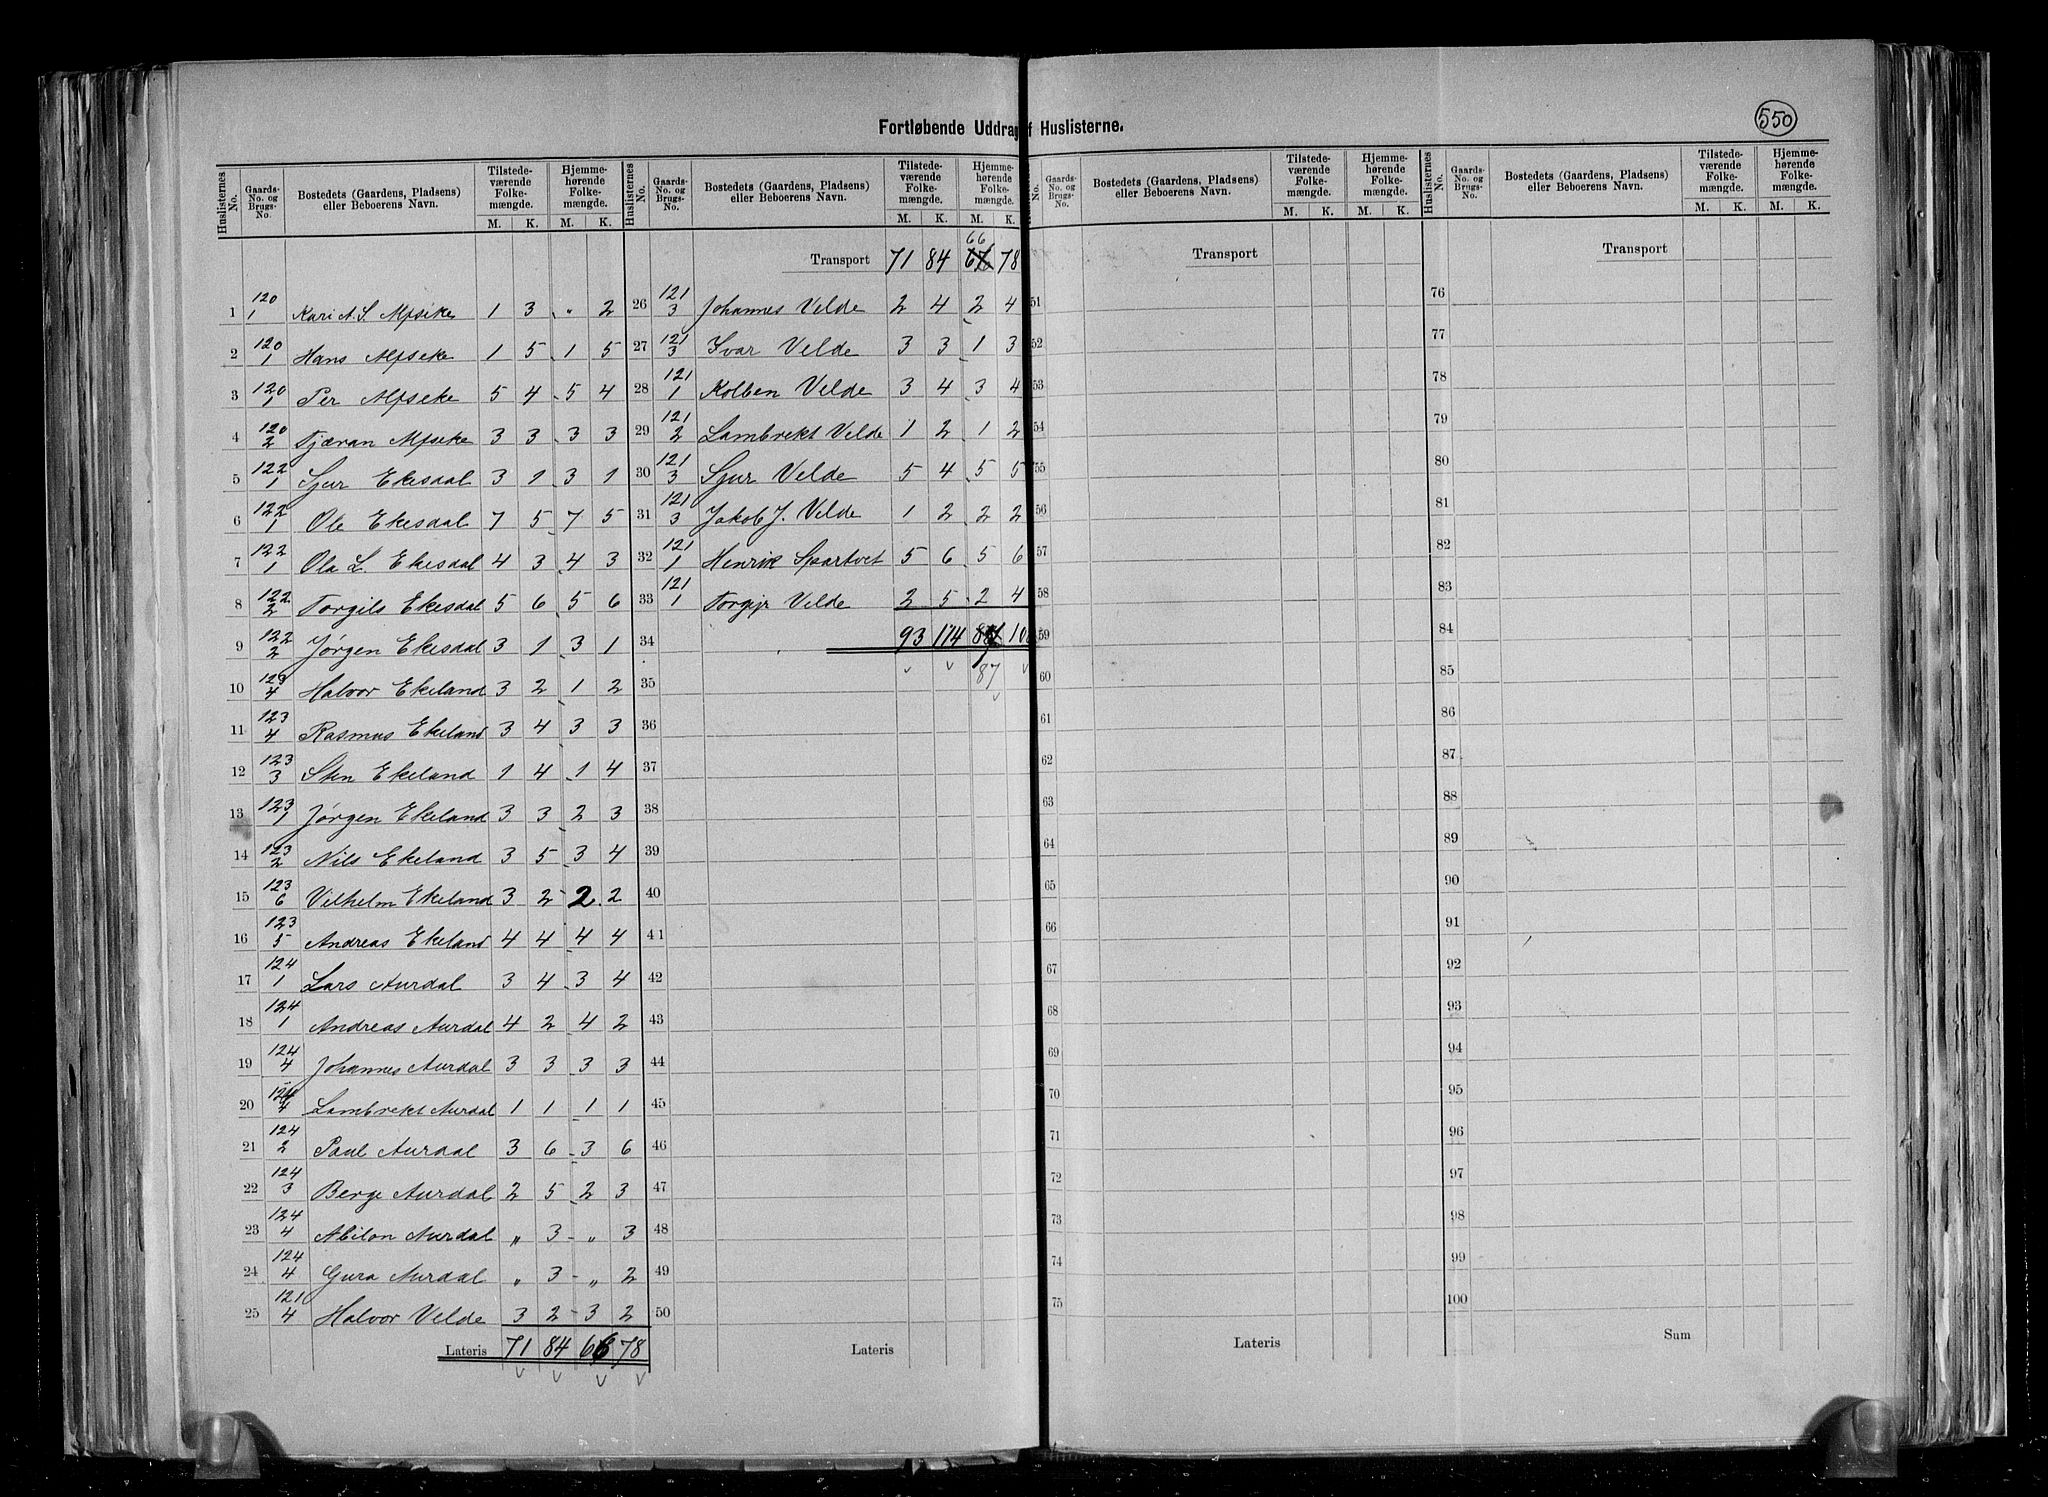 550
Fortløbende Uddrag f Huslisterne.
Huslisternes No. Gaards-No. og Brugs-No. Bostedets (Gaardens, Pladsens) eller Beboerens Navn. Tilstedeværende Folkemængde. M. K. Hjemmehørende Folkemængde. M. K.
1 120 1 Kari A. S. Mpseke 1 3 „ 2
2 120 1 Hans Mpseke 1 5 1 5
3 120 1 Per Mpseke 5 4 5 4
4 120 2 Tjæran Mpseke 3 3 3 3
5 122 1 Sjur Ekesdal 3 1 3 1
6 122 1 Ole Ekesdal 7 5 7 5
7 122 1 Ola L. Ekesdal 4 3 4 3
8 122 2 Torgils Ekesdal 5 6 5 6
9 122 2 Jørgen Ekesdal 3 1 3 1
10 123 4 Halvor Ekeland 3 2 1 2
11 123 4 Rasmus Ekeland 3 4 3 3
12 123 3 Sten Ekeland 1 4 1 4
13 123 1 Jørgen Ekeland 3 3 2 3
14 123 2 Nils Ekeland 3 5 3 4
15 123 6 Vilhelm Ekeland 3 2 2 2
16 123 5 Andreas Ekeland 4 4 4 4
17 124 1 Lars Aurdal 3 4 3 4
18 124 1 Andreas Aurdal 4 2 4 2
19 124 4 Johannes Aurdal 3 3 3 3
20 124 4 Lambrekt Aurdal 1 1 1 1
21 124 2 Paul Aurdal 3 6 3 6
22 124 3 Berge Aurdal 2 5 2 3
23 124 4 Abilon Aurdal „ 3 „ 3
24 124 4 Gura Aurdal „ 3 „ 2
25 121 4 Halvor Velde 3 2 3 2
Lateris 71 84 66 78
Huslisternes No. Gaards-No. og Brugs-No. Bostedets (Gaardens, Pladsens) eller Beboerens Navn. Tilstedeværende Folkemængde. M. K. Hjemmehørende Folkemængde. M. K.
66
Transport 71 84 78
26 121 3 Johannes Velde 2 4 2 4
27 121 3 Ivar Velde 3 3 1 3
28 121 1 Kolben Velde 3 4 3 4
29 121 2 Lambrekt Velde 1 2 1 2
30 121 3 Sjur Velde 5 4 5 5
31 121 3 Jakob J. Velde 1 2 2 2
32 121 1 Henrik Spartvet 5 6 5 6
33 121 1 Torgjr Velde 2 5 2 4
34 93 114 10
35 87
36
37
38
39
40
41
42
43
44
45
46
47
48
49
50
Lateris
No. Gaards-No. og Brugs-No. Bostedets (Gaardens, Pladsens) eller Beboerens Navn. Tilstedeværende Folkemængde. M. K. Hjemmehørende Folkemængde. M. K.
Transport
51
52
53
54
55
56
57
58
59
60
61
62
63
64
65
66
67
68
69
70
71
72
73
74
75
Lateris
Huslisternes No. Gaards-No. og Brugs-No. Bostedets (Gaardens, Pladsens) eller Beboerens Navn. Tilstedeværende Folkemængde. M. K. Hjemmehørende Folkemængde. M. K.
Transport
76
77
78
79
80
81
82
83
84
85
86
87
88
89
90
91
92
93
94
95
96
97
98
99
100
Sum